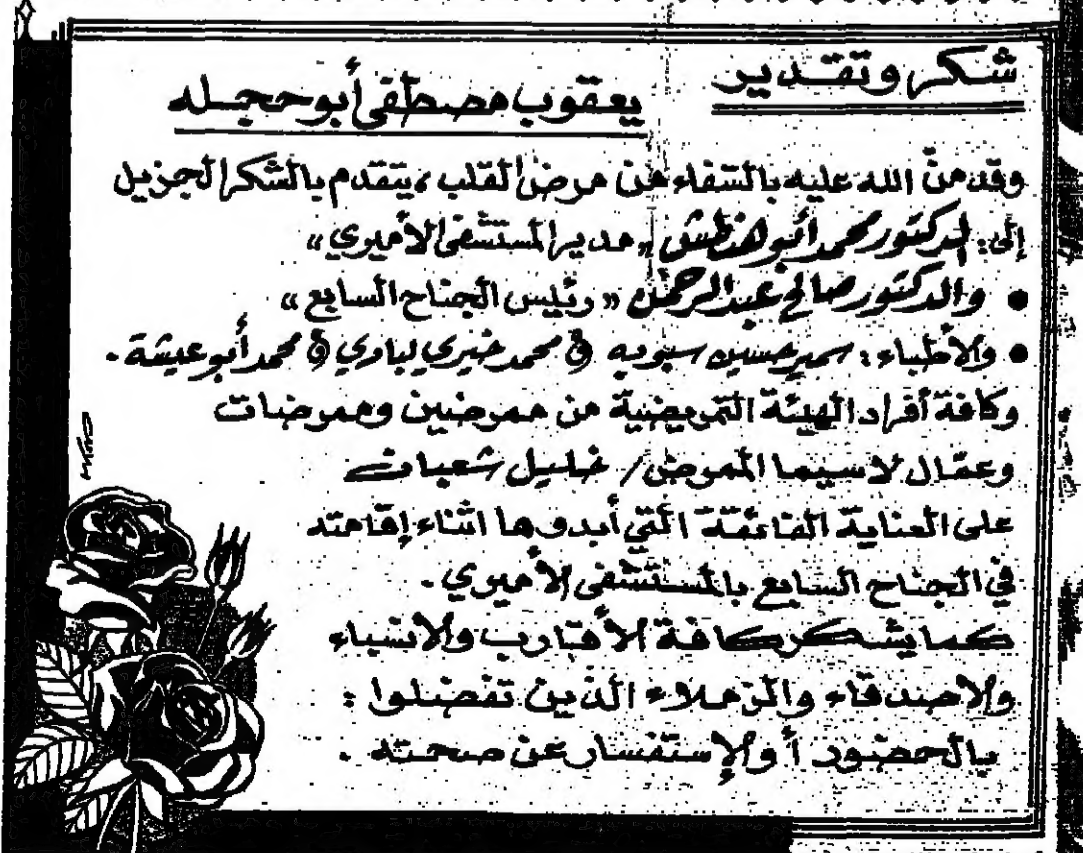 شكر وتقدير
يعقوب مصطفى أبو حجله
وقد منّ الله عليه بالشفاء من مرض القلب، يتقدم بالشكر الجزيل
إلى: الدكتور محمد أبو هنطش "مدير المستشفى الأميري"
• والدكتور صالح عبد الرحمن "رئيس الجناح السابع"
• والأطباء: سمير حسين سبويه و محمد خيري لبادي و محمد أبو عيشة.
وكافة أفراد الهيئة التمريضية من ممرضين وممرضات
وعمّال لا سيما الممرض/ خليل شعبان
على العناية الفائقة التي أبدوها اثناء إقامته
في الجناح السابع بالمستشفى الأميري.
كما يشكر كافة الأقارب والأنسباء
والأصدقاء والزملاء الذين تفضلوا:
بالحضور أو الإستفسار عن صحته.